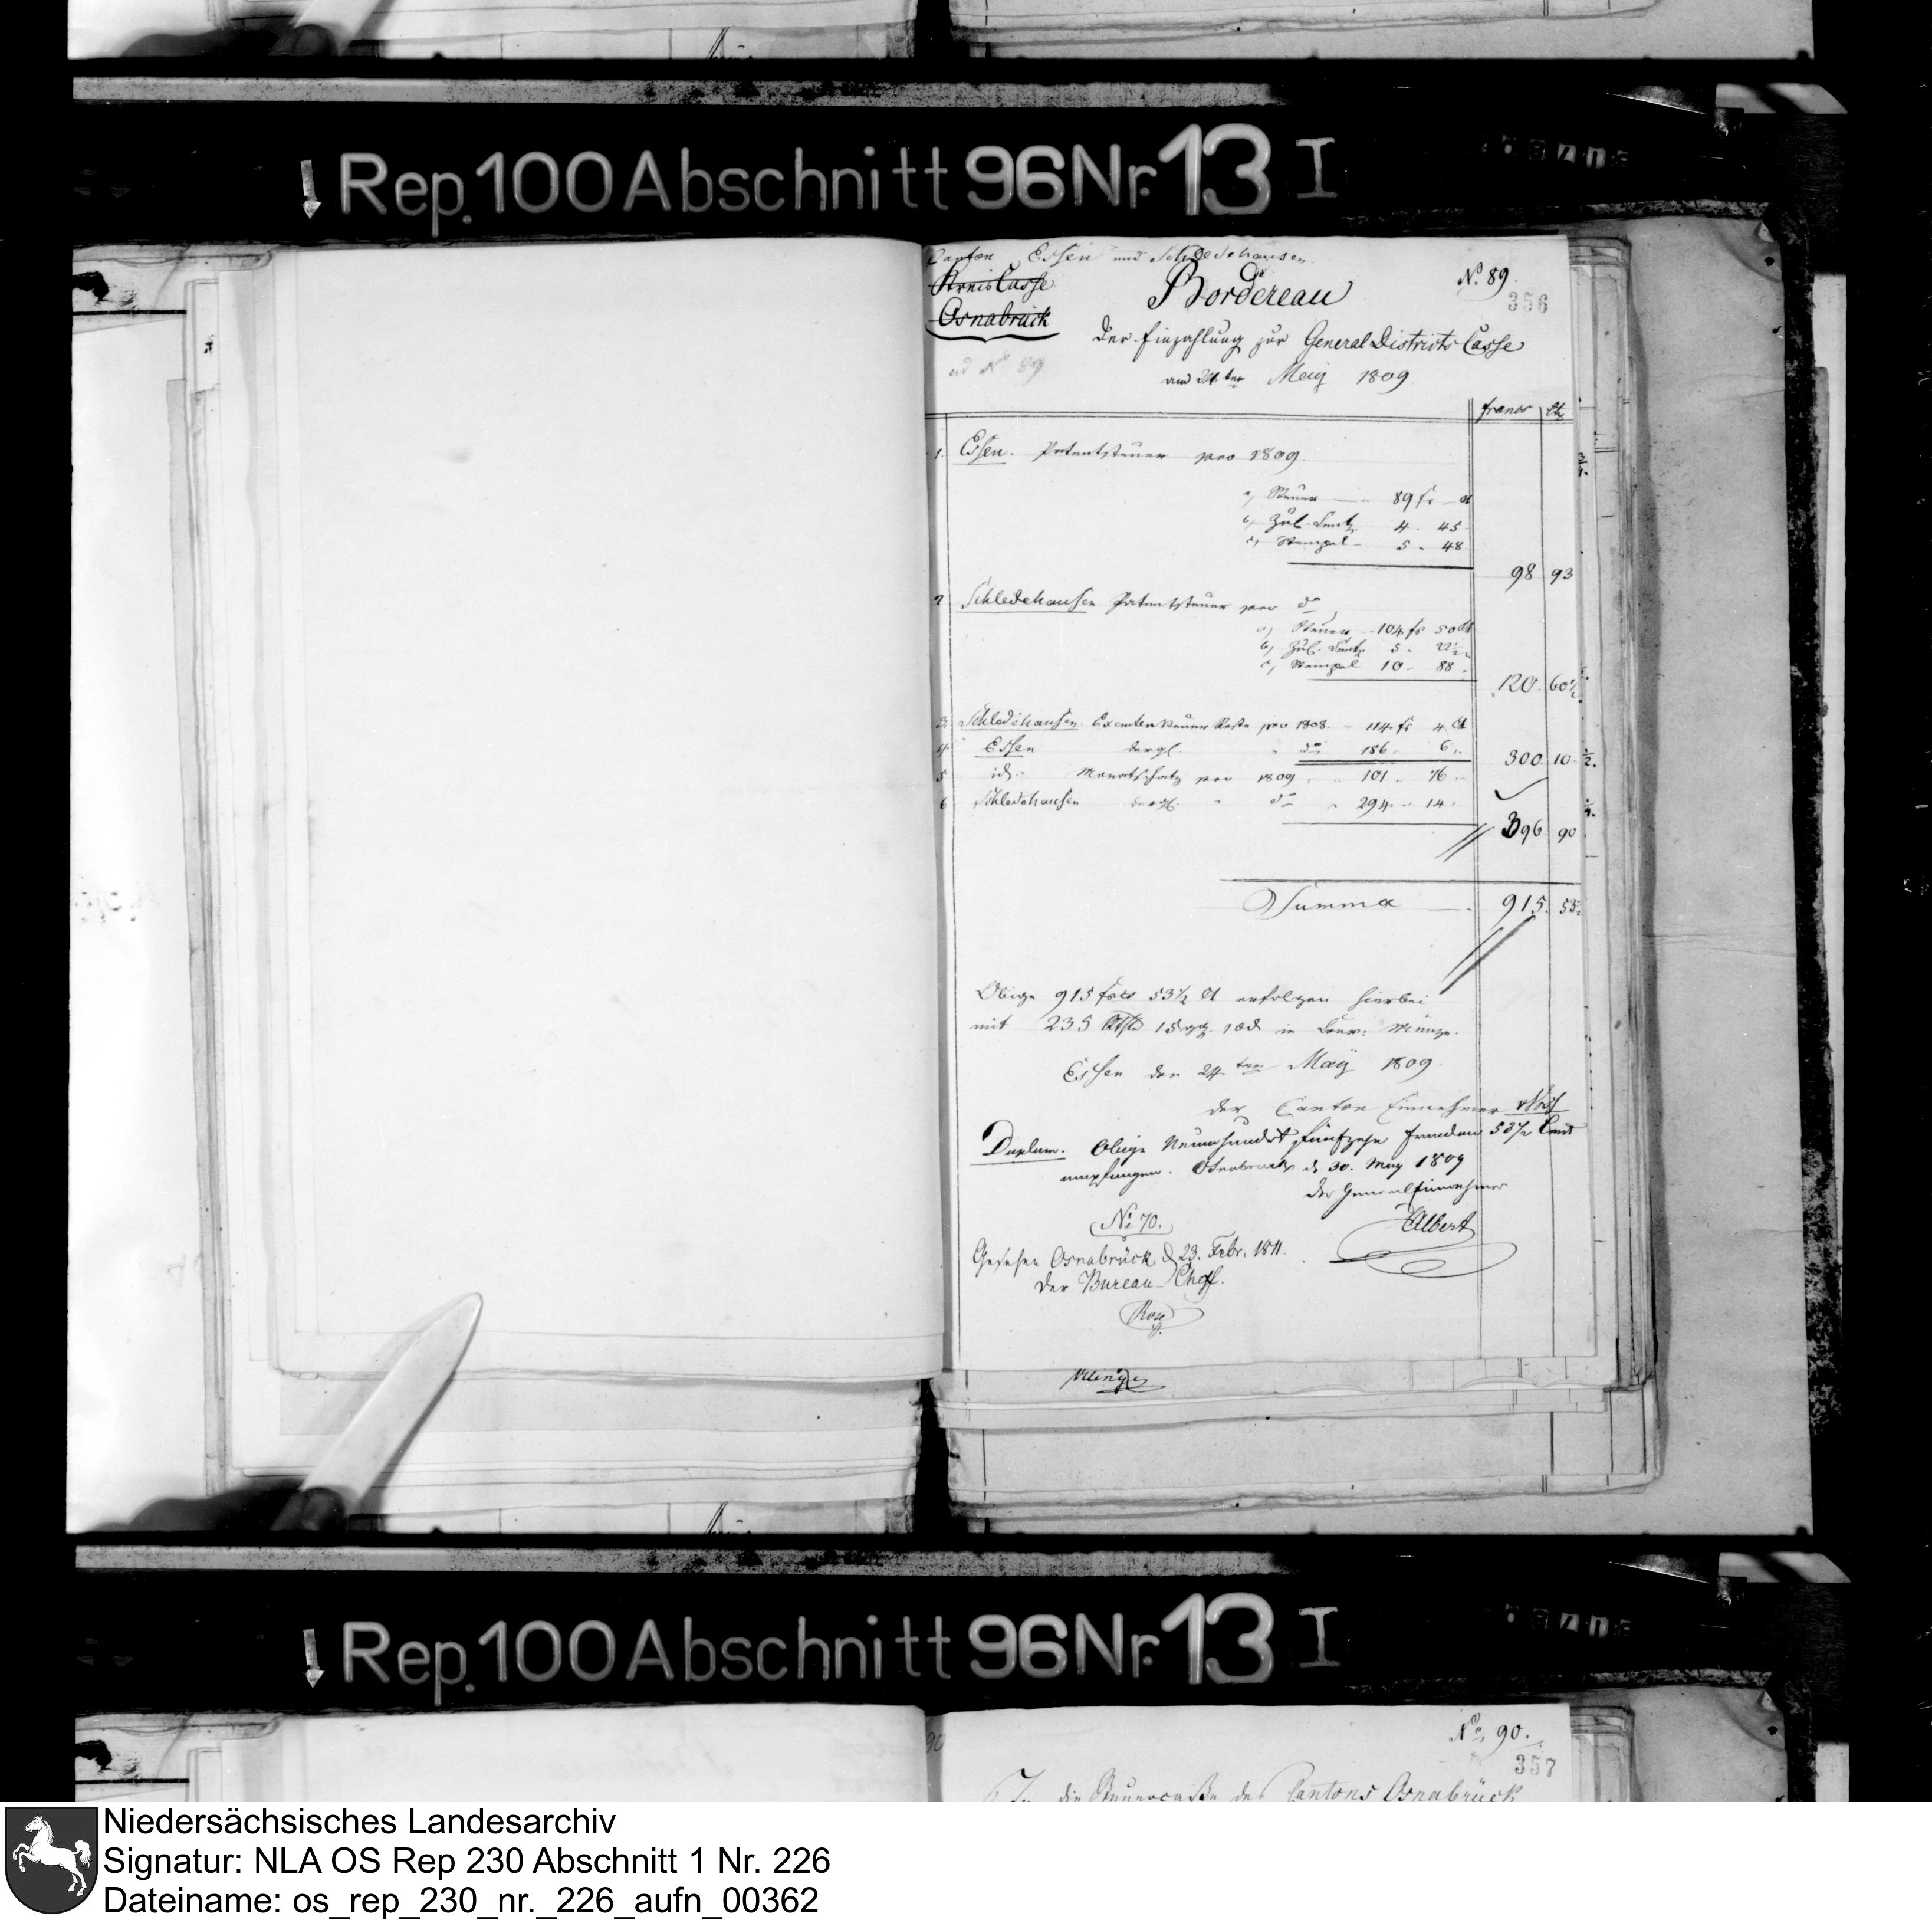 Rep. 100 Abschnitt 96 Nr. 13 I
Canton Essen und Schledehausen.
Kreis Casse
Osnabrück
Bordereau
No. 89.
356
der Einzahlung zur General Districts Casse
ad No 89
am 24ten Maÿ 1809
francs ct
1. Essen. Patentsteuer pro 1809.
a, Steuer 89 fr — ct
b, Zul. Centz 4. 45
c, Stempel 5 " 48
98 93
2 Schledehausen Patentsteuer pro do
a) Steuer - 104 fr 50 Ct
b, Zul. Centz 5 - 22½
c, Stempel 10 - 88
120 60½
3. Schledehausen Exemten Steuer Reste pro 1808. 114 fr 4 Ct
4 Essen dergl. " do 186 " 6 "
300 10
5 id. Monatschatz pro 1809 " 101 " 76
6 Schledehausen dergl. " do " 294 " 14
396 90
Summa 915. 53½
Obige 915 frcs 53½ Ct erfolgen hierbei
mit 235 15 in Münze.
Essen den 24ten Maÿ 1809.
der Canton Einnehmer
Duplum. Obige Neunhundert fünfzehn Franken 53½ Cent
empfangen. Osnabrück d. 30. May 1809
der General Einnehmer
Albert
No 70.
Gesehen Osnabrück d 23. Febr. 1811.
Der Bureau Chef.
Rep. 100 Abschnitt 96 Nr. 13 I
No. 90.
357
die Steuercasse des Cantons Osnabrück
Niedersächsisches Landesarchiv
Signatur: NLA OS Rep 230 Abschnitt 1 Nr. 226
Dateiname: os_rep_230_nr._226_aufn_00362